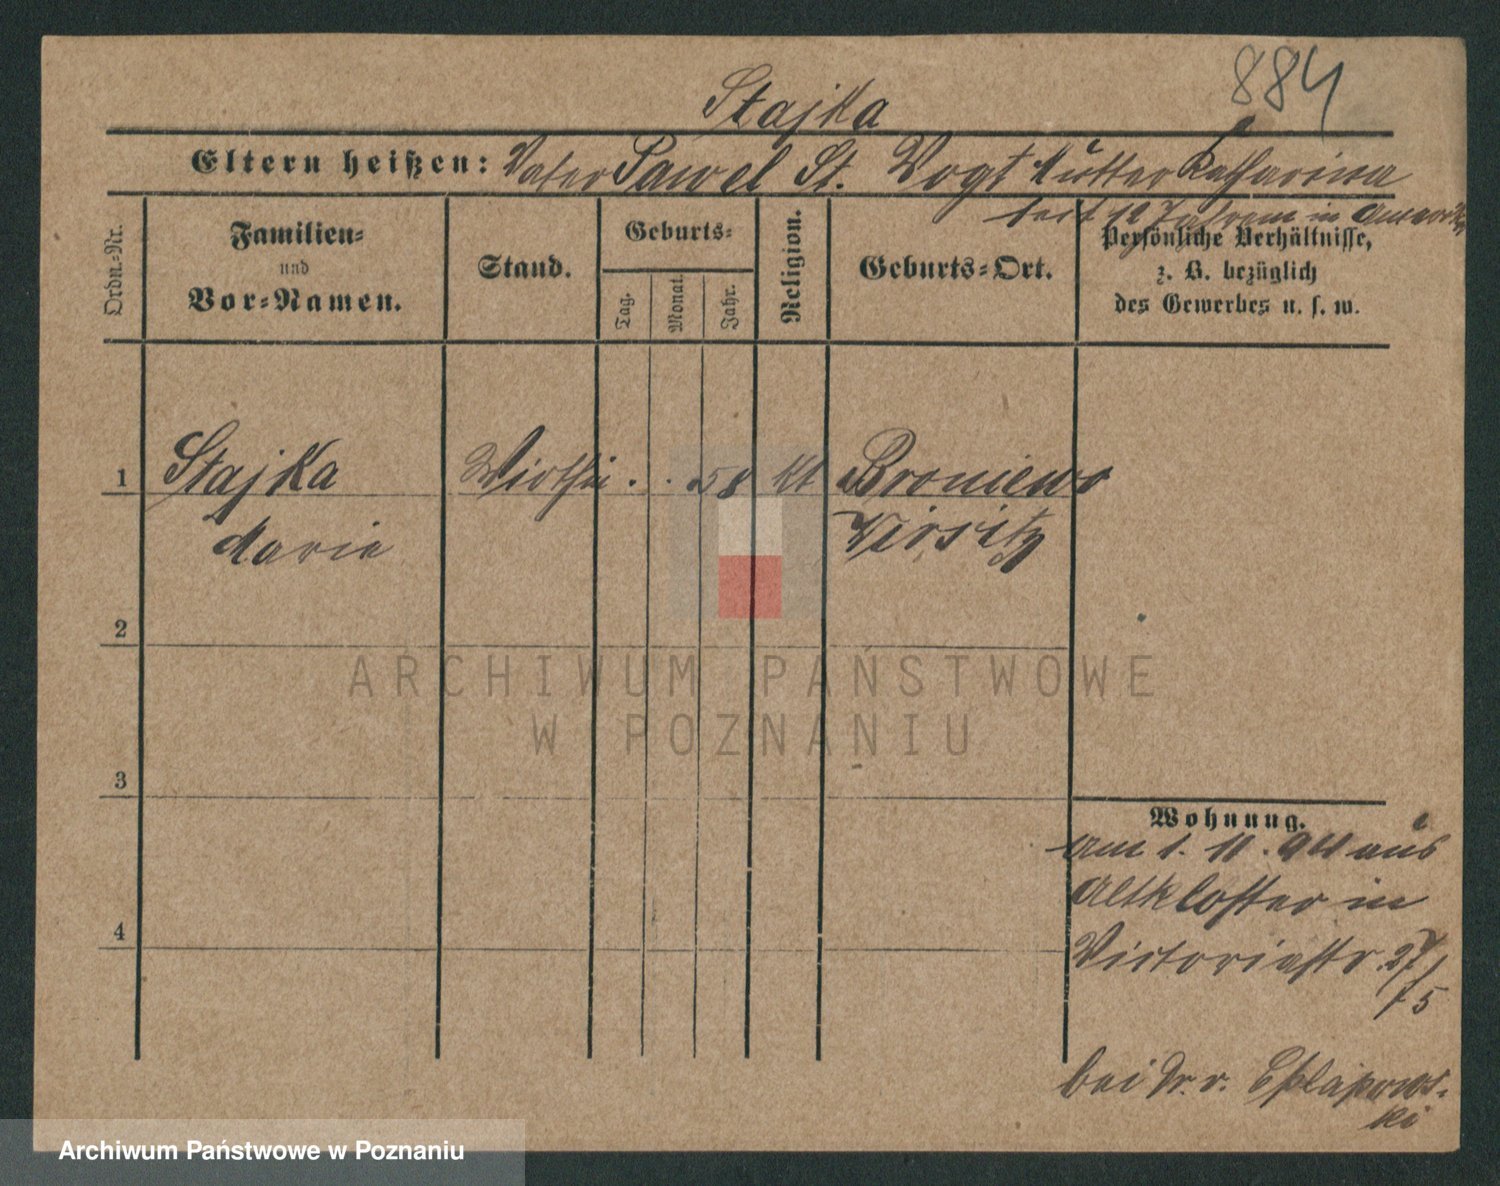 884
Stajka
Eltern heißen: Vater Pawel St. Vogt Mutter Katharina
seit 12 Jahren in
Ordn.-Nr.
Familien-
und
Vor-Namen.
Stand.
Geburts-
Tag.
Monat.
Jahr.
Religion.
Geburts-Ort.
Persönliche Verhältnisse,
z. B. bezüglich
des Gewerbes u. s. w.
1 Stajka Wirthin . . . 58 kt Broniewo
Marie Wirsitz
2
3
4
Wohnung.
am 1. 11. 94 aus
Altkloster in
Victoriastr. 27
/ 5
bei Dr. v.
ARCHIWUM PAŃSTWOWE
W POZNANIU
Archiwum Państwowe w Poznaniu